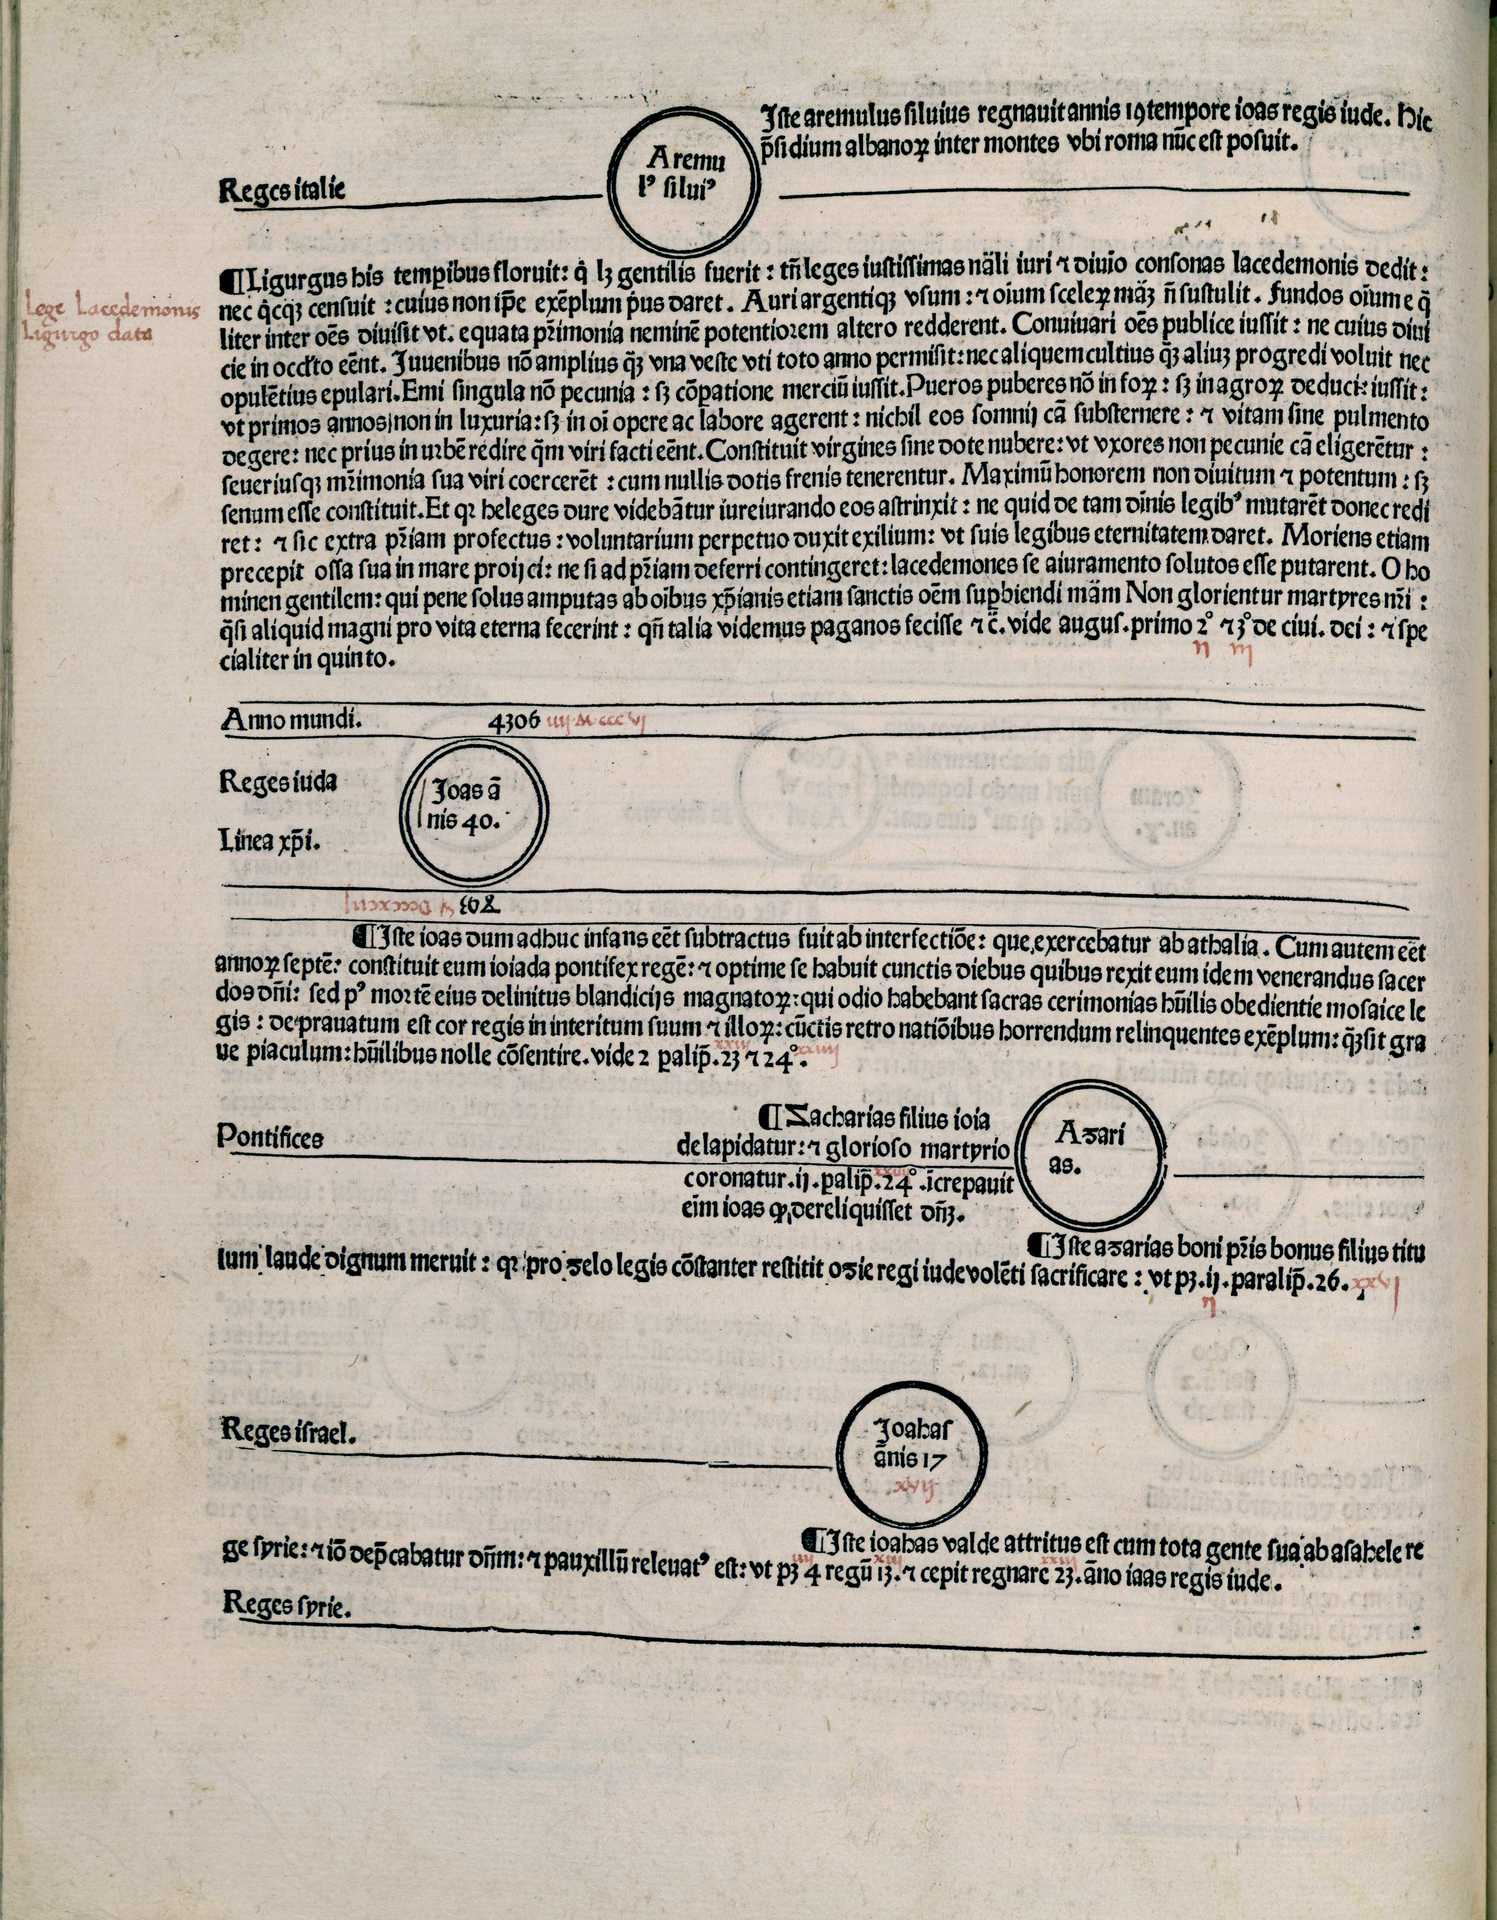 Iste aremulus siluius regnauit annis 19 tempore ioas regis iude. Hic
p̄sidium albanoꝝ inter montes vbi roma nūc est posuit.
Aremu
lꝰ siluiꝰ
Reges italie
¶Ligurgus his temꝑibus floruit: q̇ lꝫ gentilis fuerit: tn̄ leges iustissimas nāli iuri ⁊ diuio consonas lacedemonis dedit:
nec q̇cqꝫ censuit: cuius non ip̄e exēplum ṗus daret. Auri argentiqꝫ vsum: ⁊ oīum sceleꝝ māꝫ n̄ sustulit. fundos oīum eq̄
liter inter oēs diuisit vt. equata pr̄imonia neminē potentiorem altero redderent. Conuiuari oēs publice iussit: ne cuius diui
cie in occl̄to eēnt. Iuuenibus nō amplius q̄ꝫ vna veste vti toto anno permisit: nec aliquem cultius q̄ꝫ aliuꝫ progredi voluit nec
opulētius epulari. Emi singula nō pecunia: sꝫ cōpatione merciū iussit. Pueros puberes nō in foꝝ: sꝫ in agroꝝ deduci: iussit:
vt primos annos non in luxuria: sꝫ in oī opere ac labore agerent: nichil eos somnij cā substernere: ⁊ vitam sine pulmento
degere: nec prius in urbē redire q̄m viri facti eēnt. Constituit virgines sine dote nubere: vt vxores non pecunie cā eligerētur:
seueriusqꝫ mr̄imonia sua viri coercerēt: cum nullis dotis frenis tenerentur. Maximū honorem non diuitum ⁊ potentum: sꝫ
senum esse constituit. Et qꝛ he leges dure videbātur iureiurando eos astrinxit: ne quid de tam dīnis legibꝰ mutarēt donec redi
ret: ⁊ sic extra pr̄iam profectus: voluntarium perpetuo duxit exilium: vt suis legibus eternitatem daret. Moriens etiam
precepit ossa sua in mare proijci: ne si ad pr̄iam deferri contingeret: lacedemones se aiuramento solutos esse putarent. O ho
minen gentilem: qui pene solus amputas ab oībus xp̄ianis etiam sanctis oēm suꝑbiendi mām Non glorientur martyres nr̄i:
q̄si aliquid magni pro vita eterna fecerint: qn̄ talia videmus paganos fecisse ⁊ c̄. vide augus. primo 2° ⁊ 3° de ciui. dei: ⁊ spe
ij iij
cialiter in quinto.
Lege Lacedemonis
Ligurgo data
Anno mundi. 4306 iiij M cccvj
Reges iuda
Ioas ā
nis 40.
Linea xp̄i.
¶Iste ioas dum adhuc infans eēt subtractus fuit ab interfectiōe: que exercebatur ab athalia. Cum autem eēt
annoꝝ septē: constituit eum ioiada pontifex regē: ⁊ optime se habuit cunctis diebus quibus rexit eum idem venerandus sacer
dos dn̄i: sed pꝰ mortē eius delinitus blandicijs magnatoꝝ: qui odio habebant sacras cerimonias hūilis obedientie mosaice le
gis: deprauatum est cor regis in interitum suum ⁊ illoꝝ: cūctis retro natiōibus horrendum relinquentes exēplum: q̄ꝫ sit gra
ue piaculum: hūilibus nolle cōsentire. vide 2 ꝑalip̄. 23 ⁊ 24°.
xxiij xxiiij
¶Zacharias filius ioia
de lapidatur: ⁊ glorioso martyrio
coronatur. ij. ꝑalip̄. 24°. īcrepauit
eīm ioas ꝙ dereliquisset dn̄ꝫ.
xxiiij
Pontifices
Azari
as.
¶Iste azarias boni pr̄is bonus filius titu
lum laude dignum meruit: qꝛ pro zelo legis cōstanter restitit ozie regi iude volēti sacrificare: vt pꝫ. ij. paralip̄. 26. xxvj
ij
Reges israel.
Ioahas
ānis 17
xvij
¶Iste ioahas valde attritus est cum tota gente sua ab asahele re
ge syrie: ⁊ iō dep̄cabatur dn̄m: ⁊ pauxillū releuatꝰ est: vt pꝫ 4 regū 13. ⁊ cepit regnare 23. āno iaas regis iude.
iiij xiij xxiij
Reges syrie.